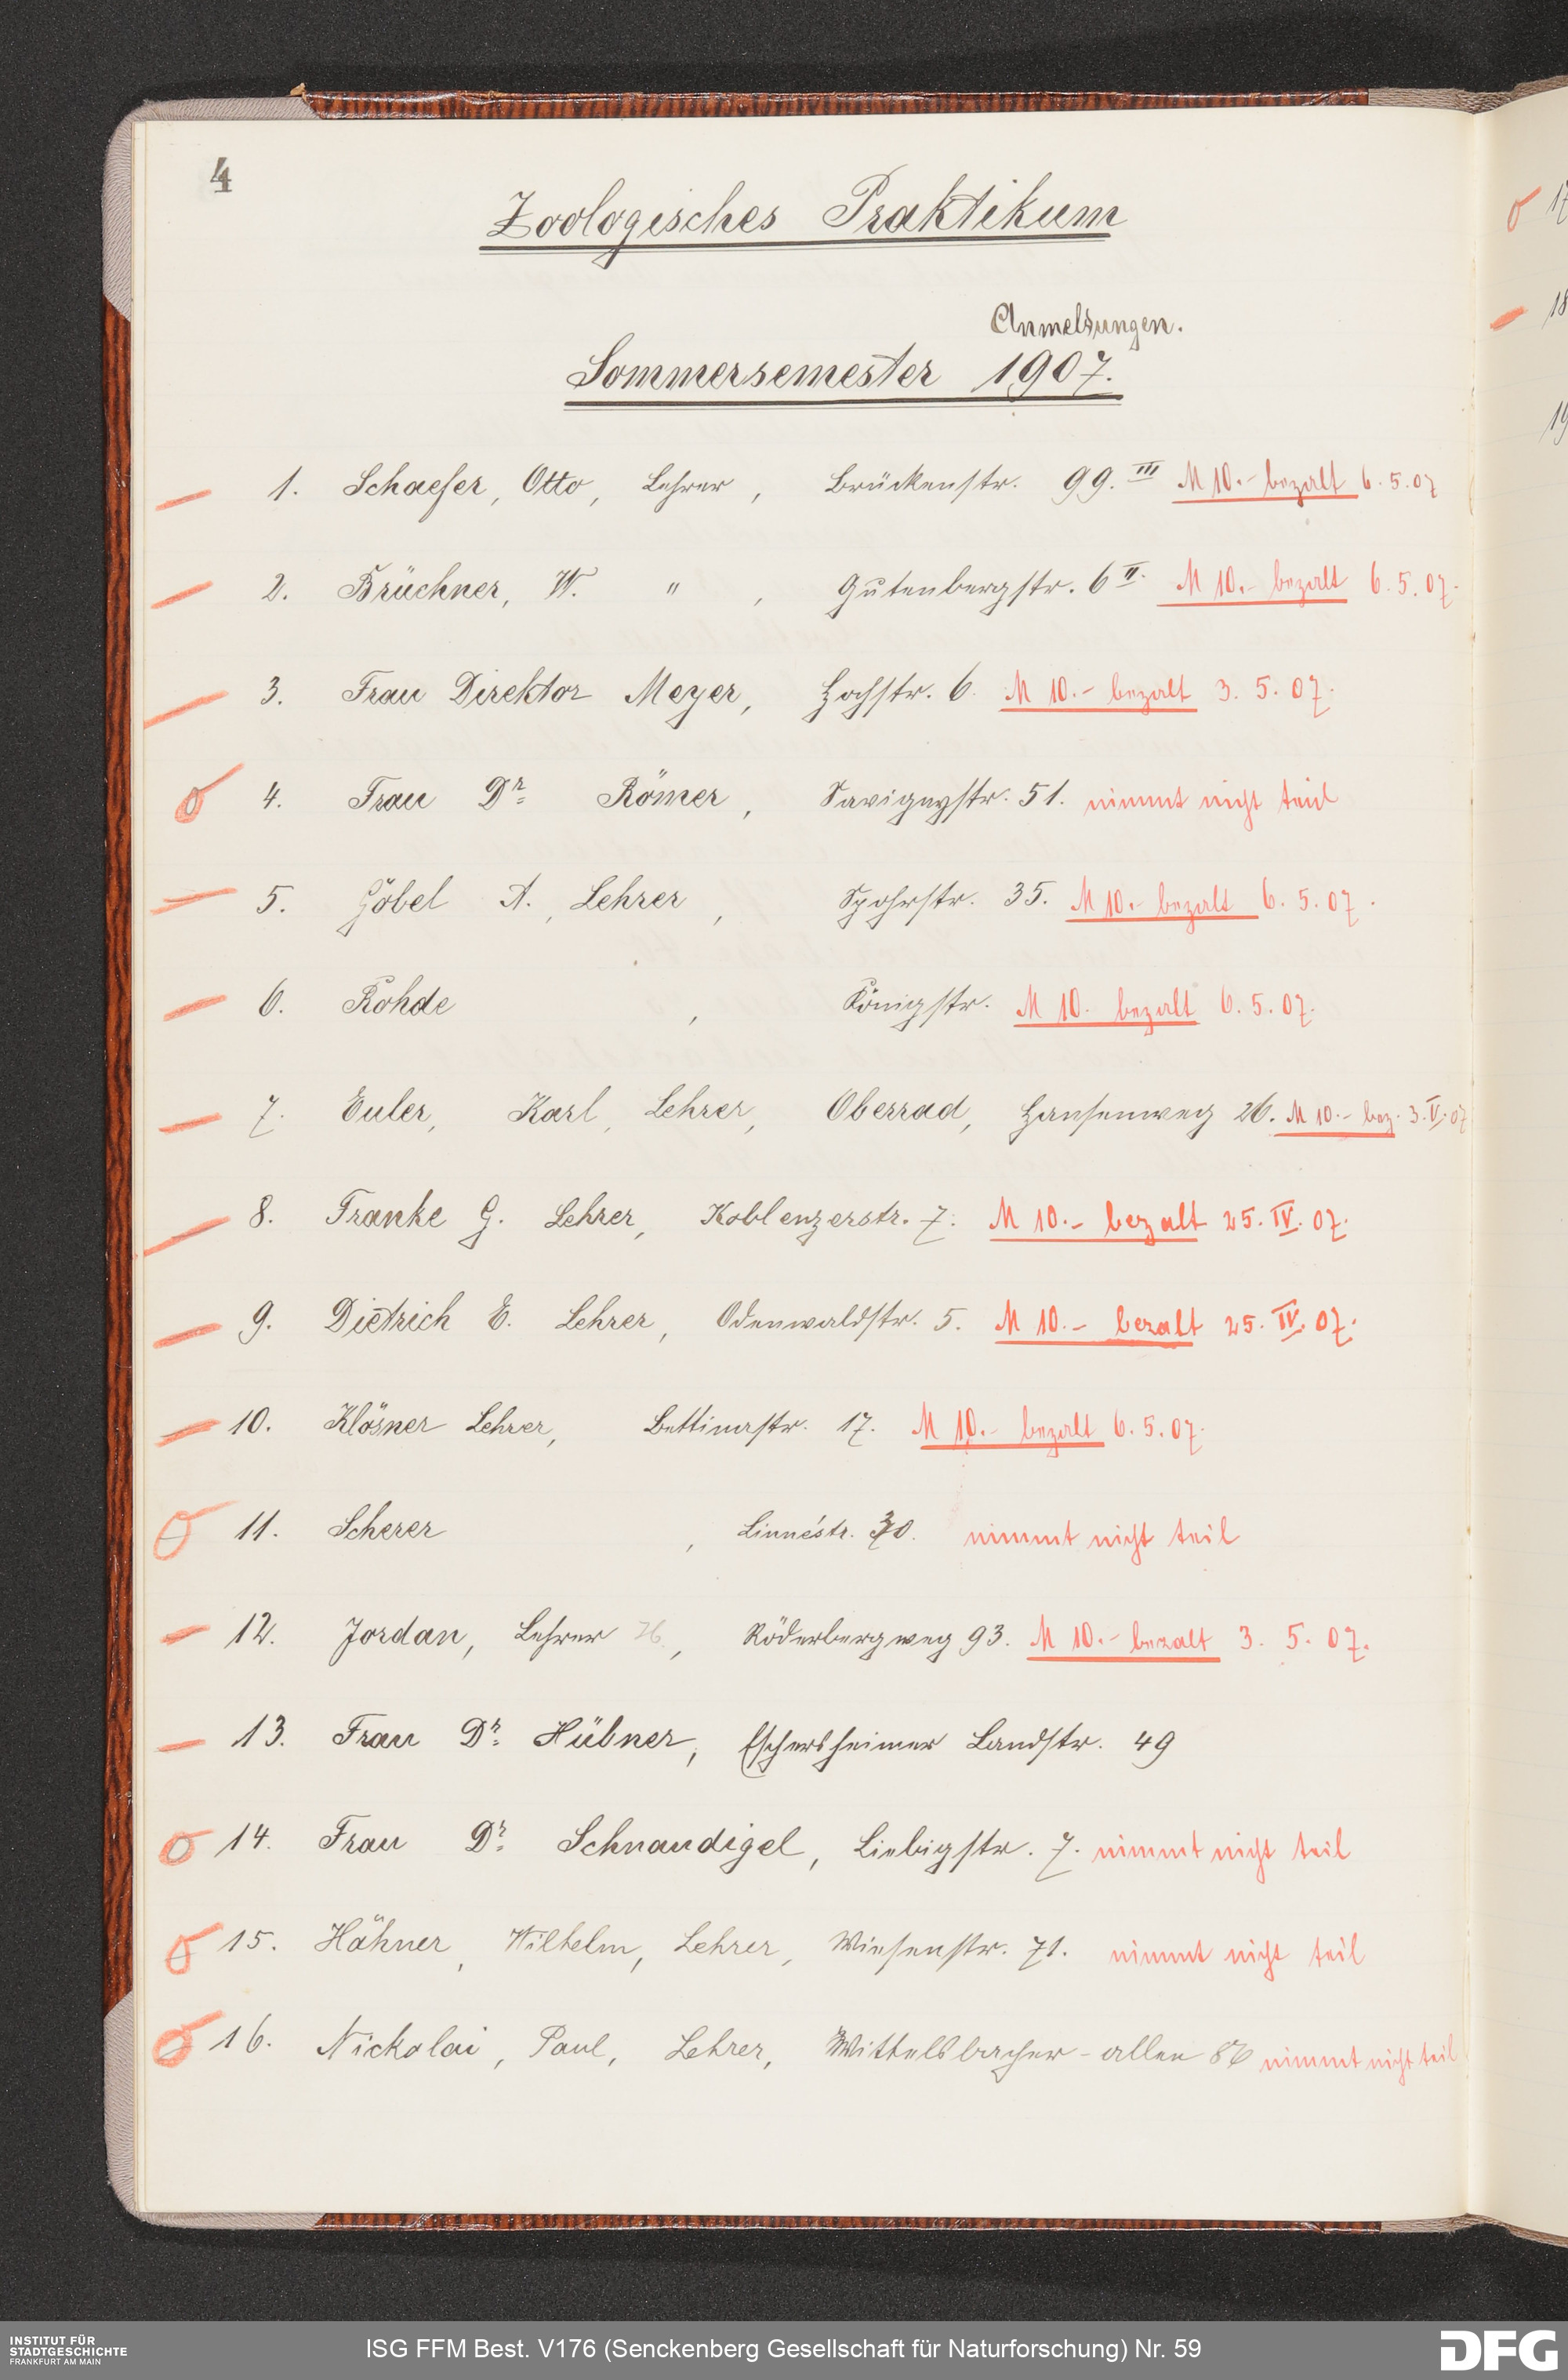 4
Zoologisches Praktikum
Anmeldungen.
Sommersemester 1907.
1. Schaefer, Otto, Lehrer, Brückenstr. 99. III M 10.- bezalt 6.5.07
2. Brüchner, W. " , Gutenbergstr. 6 II. M 10.- bezalt 6.5.07.
3. Frau Direktor Meyer, Hochstr. 6. M 10.- bezalt 3.5.07.
4. Frau Dr. Römer, Savignystr. 51. nimmt nicht teil
5. Göbel A., Lehrer, Spohrstr. 35. M 10.- bezalt 6.5.07.
6. Rohde , Königstr. M 10. bezalt 6.5.07.
7. Euler, Karl, Lehrer, Oberrad, Hansenweg 26. M 10.- bez. 3.V.07
8. Franke G. Lehrer, Koblenzerstr. 7. M 10.- bezalt 25.IV.07.
9. Dietrich E. Lehrer, Odenwaldstr. 5. M 10.- bezalt 25.IV.07.
10. Klösner Lehrer, Bettinastr. 17. M 10.- bezalt 6.5.07.
11. Scherer , Linnéstr. 30. nimmt nicht teil
12. Jordan, Lehrer H., Röderbergweg 93. M 10.- bezalt 3.5.07.
13. Frau Dr. Hübner, Eschersheimer Landstr. 49
14. Frau Dr. Schnaudigel, Liebigstr. 7. nimmt nicht teil
15. Hähner, Wilhelm, Lehrer, Wiesenstr. 71. nimmt nicht teil
16. Nickolai, Paul, Lehrer, Wittelsbacher-allee 86 nimmt nicht teil
17
18
19
INSTITUT FÜR
STADTGESCHICHTE
FRANKFURT AM MAIN
ISG FFM Best. V176 (Senckenberg Gesellschaft für Naturforschung) Nr. 59
DFG